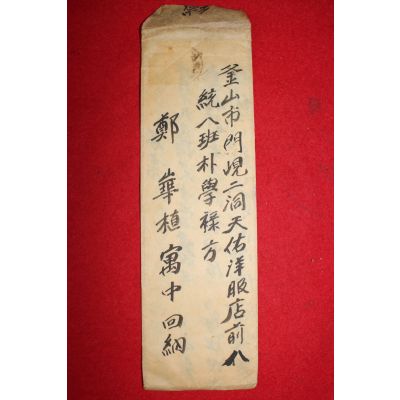 釜山市門峴二洞天佑洋服店前八
統八班朴學祿方
鄭華植寓中回納